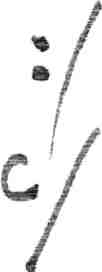 :/
c/